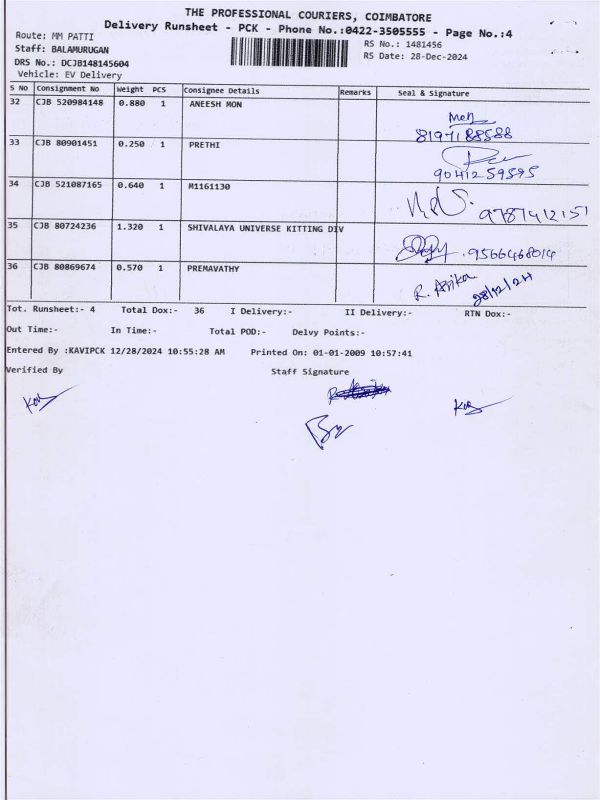 THE PROFESSIONAL COURIERS, COIMBATORE
Delivery Runsheet - PCK - Phone No.:0422-3505555 - Page No.:4
Route: MM PATTI
RS No.: 1481456
Staff: BALAMURUGAN
RS Date: 28-Dec-2024
DRS No.: DCJB148145604
Vehicle: EV Delivery
S No Consignment No Weight PCS Consignee Details Remarks Seal & Signature
32 CJB 520984148 0.880 1 ANEESH MON
8197188588
33 CJB 80901451 0.250 1 PRETHI
9041259595
34 CJB 521087165 0.640 1 M1161130
9787412151
35 CJB 80724236 1.320 1 SHIVALAYA UNIVERSE KITTING DIV
9566468014
36 CJB 80869674 0.570 1 PREMAVATHY
28/12/24
Tot. Runsheet:- 4 Total Dox:- 36 I Delivery:- II Delivery:- RTN Dox:-
Out Time:- In Time:- Total POD:- Delvy Points:-
Entered By :KAVIPCK 12/28/2024 10:55:28 AM Printed On: 01-01-2009 10:57:41
Verified By Staff Signature